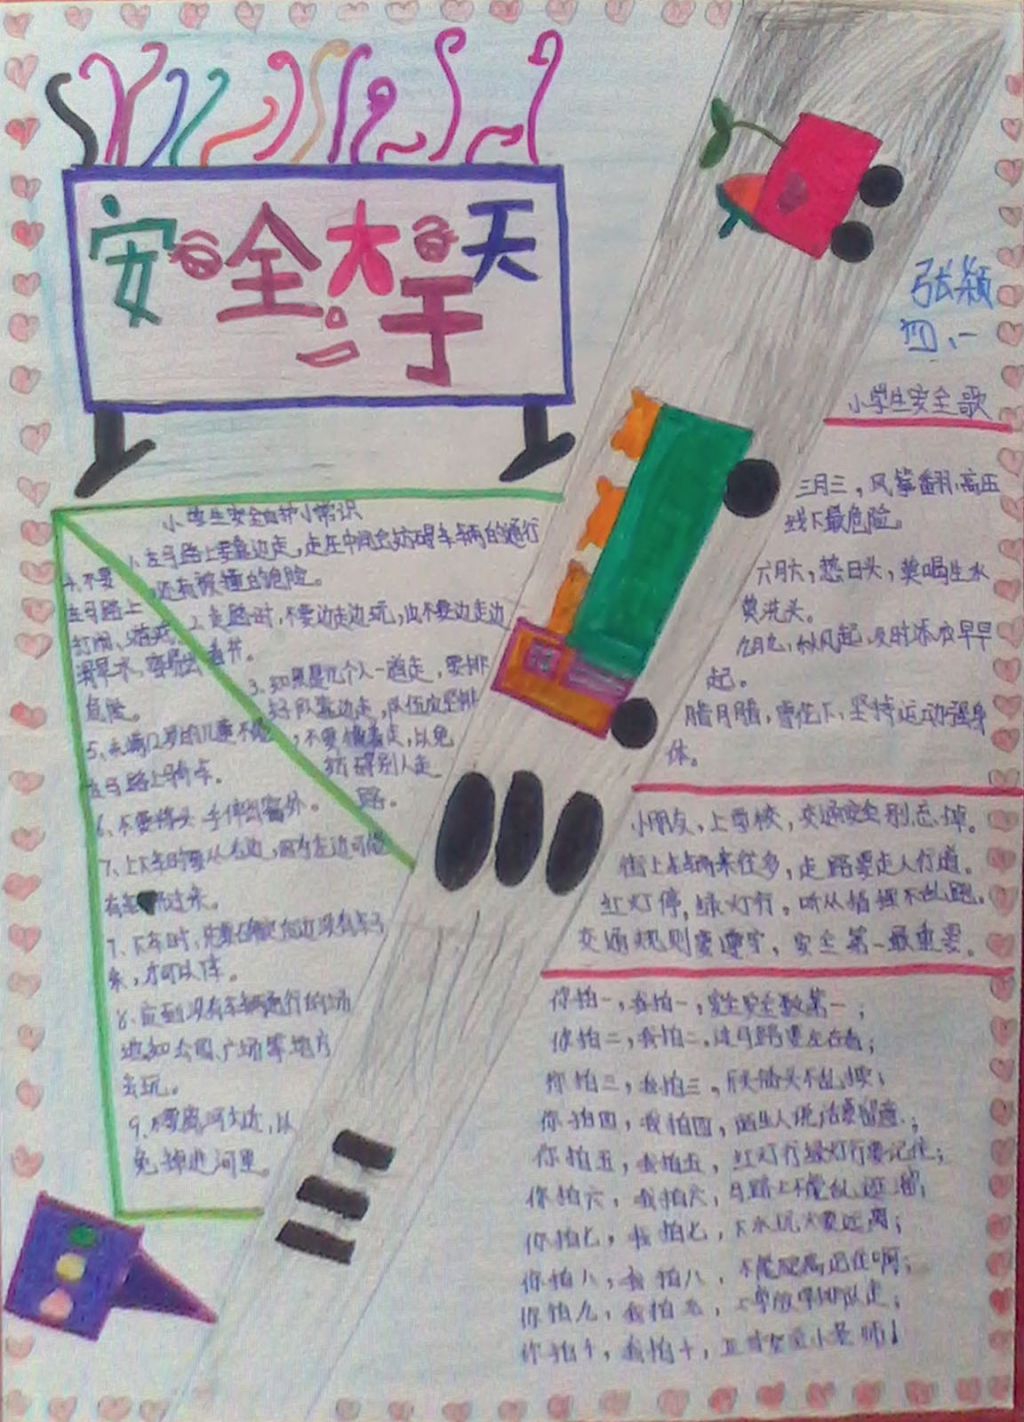 安全大于天
张颖
四、一
小学生安全歌
三月三，风筝翻，高压
线下最危险。
六月六，热日头，莫喝生水
莫洗头。
九月九，秋风起，及时添衣早早
起。
腊月腊，雪花下，坚持运动强身
体。
小朋友，上学校，交通安全别忘掉。
街上车辆来往多，走路要走人行道。
红灯停，绿灯行，听从指挥不乱跑。
交通规则要遵守，安全第一最重要。
你拍一，我拍一，
你拍二，我拍二，过马路要左右看；
你拍三，我拍三，
你拍四，我拍四，
你拍五，我拍五，红灯行绿灯行要记住；
你拍六，我拍六，马路上不能乱
你拍七，我拍七，
你拍八，我拍八，
你拍九，我拍九，
你拍十，我拍十，
小学生安全自护小常识
1、在马路上要靠边走，走在中间会妨碍车辆的通行
，还有被撞的危险。
2、走路时，不要边走边玩，也不要边走边
看书。
3、如果是几个人一道走，要排
好队靠边走，队伍应竖排
，不要横着走，以免
妨碍别人走
路。
4、不要
在马路上
打闹、游戏、
危险。
5、未满12岁的儿童不能
在马路上骑车。
6、不要将头、手伸出窗外。
7、上下车时要从右边，因为左边可能
有车 过来。
7、下车时，
来，才可以下车。
8、应到没有车辆通行的场
地，如公园、广场等地方
去玩。
9、不要离河太近，以
免掉进河里。